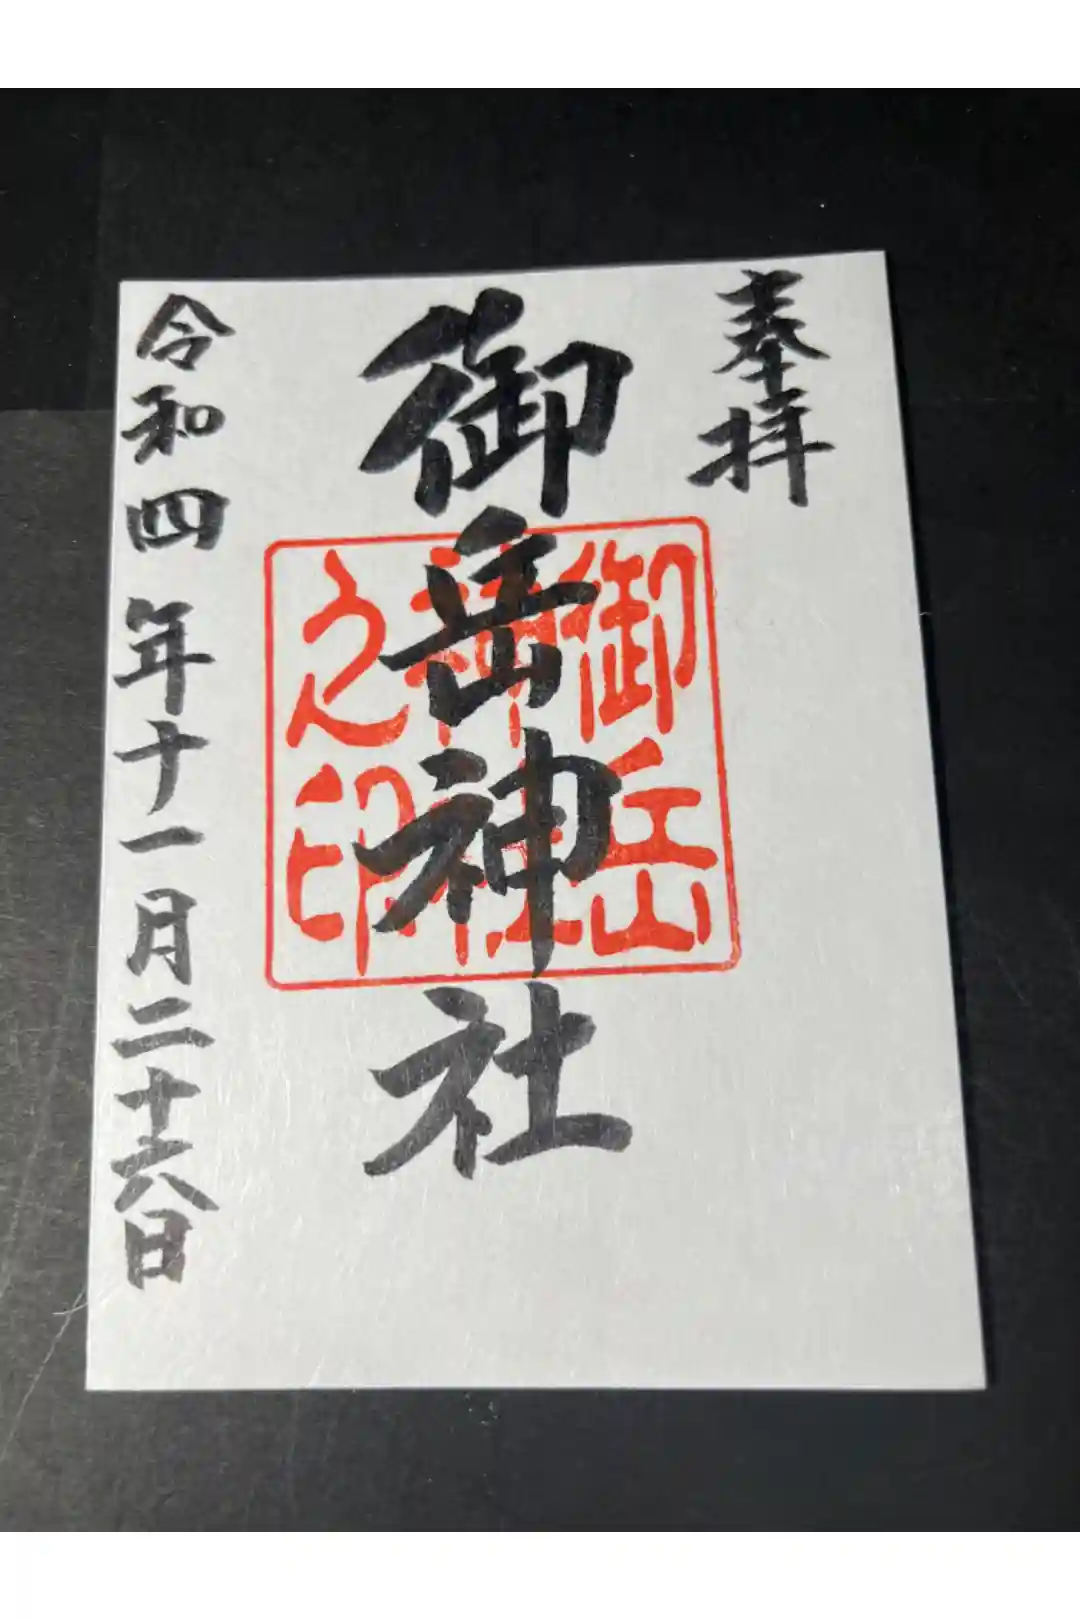 奉拝
御岳神社
御岳
神社
之印
令和四年十一月二十六日